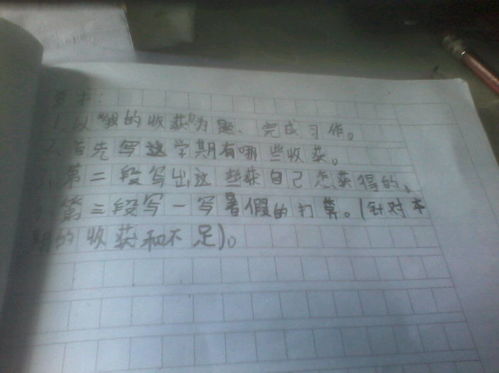 要求:
1. 以"我的收获"为题、完成习作。
2. 首先写这学期有哪些收获。
第二段写出这些获自己怎获得的。
第三段写一写暑假的打算。(针对本
期的收获和不足)。